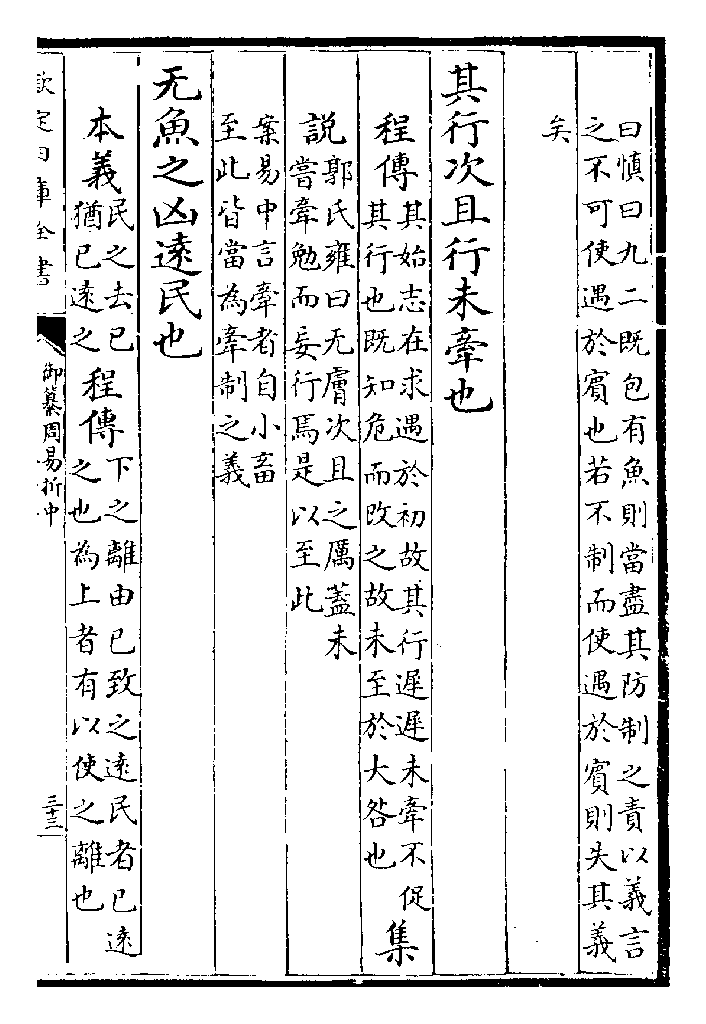 曰慎曰九二既包有魚則當盡其防制之責以義言
之不可使遇於賓也若不制而使遇於賓則失其義
矣
其行次且行未牽也
程傳其始志在求遇於初故其行遲遲未牽不促
其行也既知危而改之故未至於大咎也集
說郭氏雍曰无膚次且之厲蓋未
嘗牽勉而妄行焉是以至此
案易中言牽者自小畜
至此皆當為牽制之義
无魚之凶遠民也
本義民之去已
猶已遠之程傳下之離由已致之遠民者已遠
之也為上者有以使之離也
欽定四庫全書
御纂周易折中
三十三